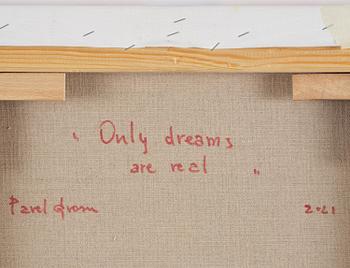 „ Only dreams
are real "
Pavel Grom 2021